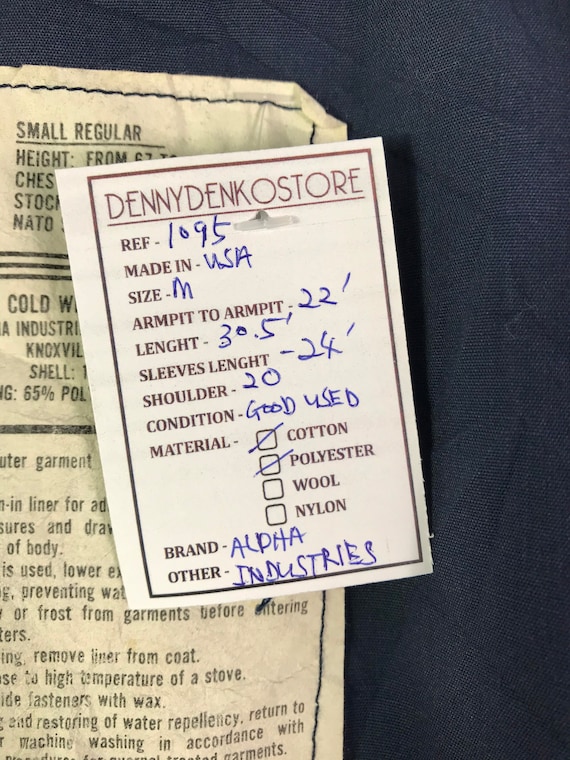 SMALL REGULAR
HEIGHT: FROM 67 TO
CHES
STOCK
NATO
COLD W
A INDUSTRI
KNOXVIL
SHELL:
G: 65% POL
uter garment
n-in liner for ad
sures and draw
of body.
is used, lower ex
g, preventing wat
y or frost from garments before entering
ters.
ing, remove liner from coat.
ose to high temperature of a stove.
ide fasteners with wax.
g and restoring of water repellency, return to
r machine washing in accordance with
procedures for quarpel treated garments.
DENNYDENKOSTORE
REF - 1095
MADE IN - USA
SIZE - M
ARMPIT TO ARMPIT - 22'
LENGHT - 30.5'
SLEEVES LENGHT - 24'
SHOULDER - 20
CONDITION - GOOD USED
MATERIAL - COTTON
POLYESTER
WOOL
NYLON
BRAND - ALPHA
OTHER - INDUSTRIES